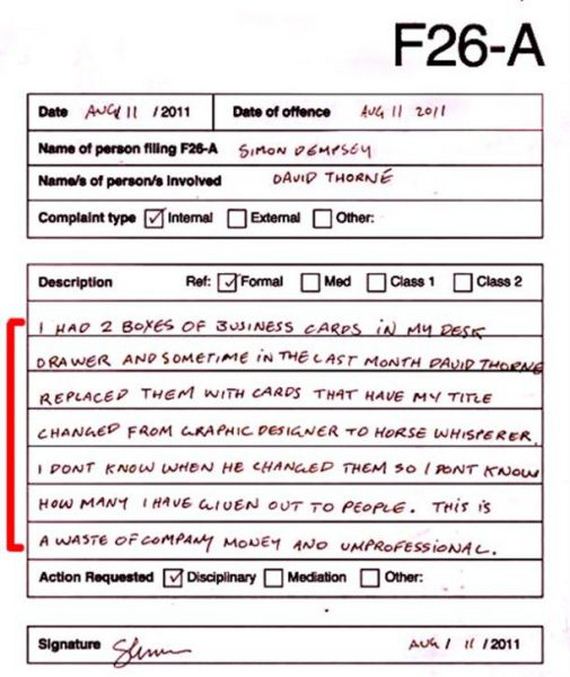 F26-A
Date AUG/ 11 / 2011 Date of offence AUG 11 2011
Name of person filing F26-A SIMON DEMPSEY
Name/s of person/s involved DAVID THORNE
Complaint type ☑ Internal ☐ External ☐ Other:
Description Ref: ☑ Formal ☐ Med ☐ Class 1 ☐ Class 2
I HAD 2 BOXES OF BUSINESS CARDS IN MY DESK
DRAWER AND SOMETIME IN THE LAST MONTH DAVID THORNE
REPLACED THEM WITH CARDS THAT HAVE MY TITLE
CHANGED FROM GRAPHIC DESIGNER TO HORSE WHISPERER.
I DONT KNOW WHEN HE CHANGED THEM SO I DONT KNOW
HOW MANY I HAVE GIVEN OUT TO PEOPLE. THIS IS
A WASTE OF COMPANY MONEY AND UMPROFESSIONAL.
Action Requested ☑ Disciplinary ☐ Mediation ☐ Other:
Signature AUG / 11 / 2011